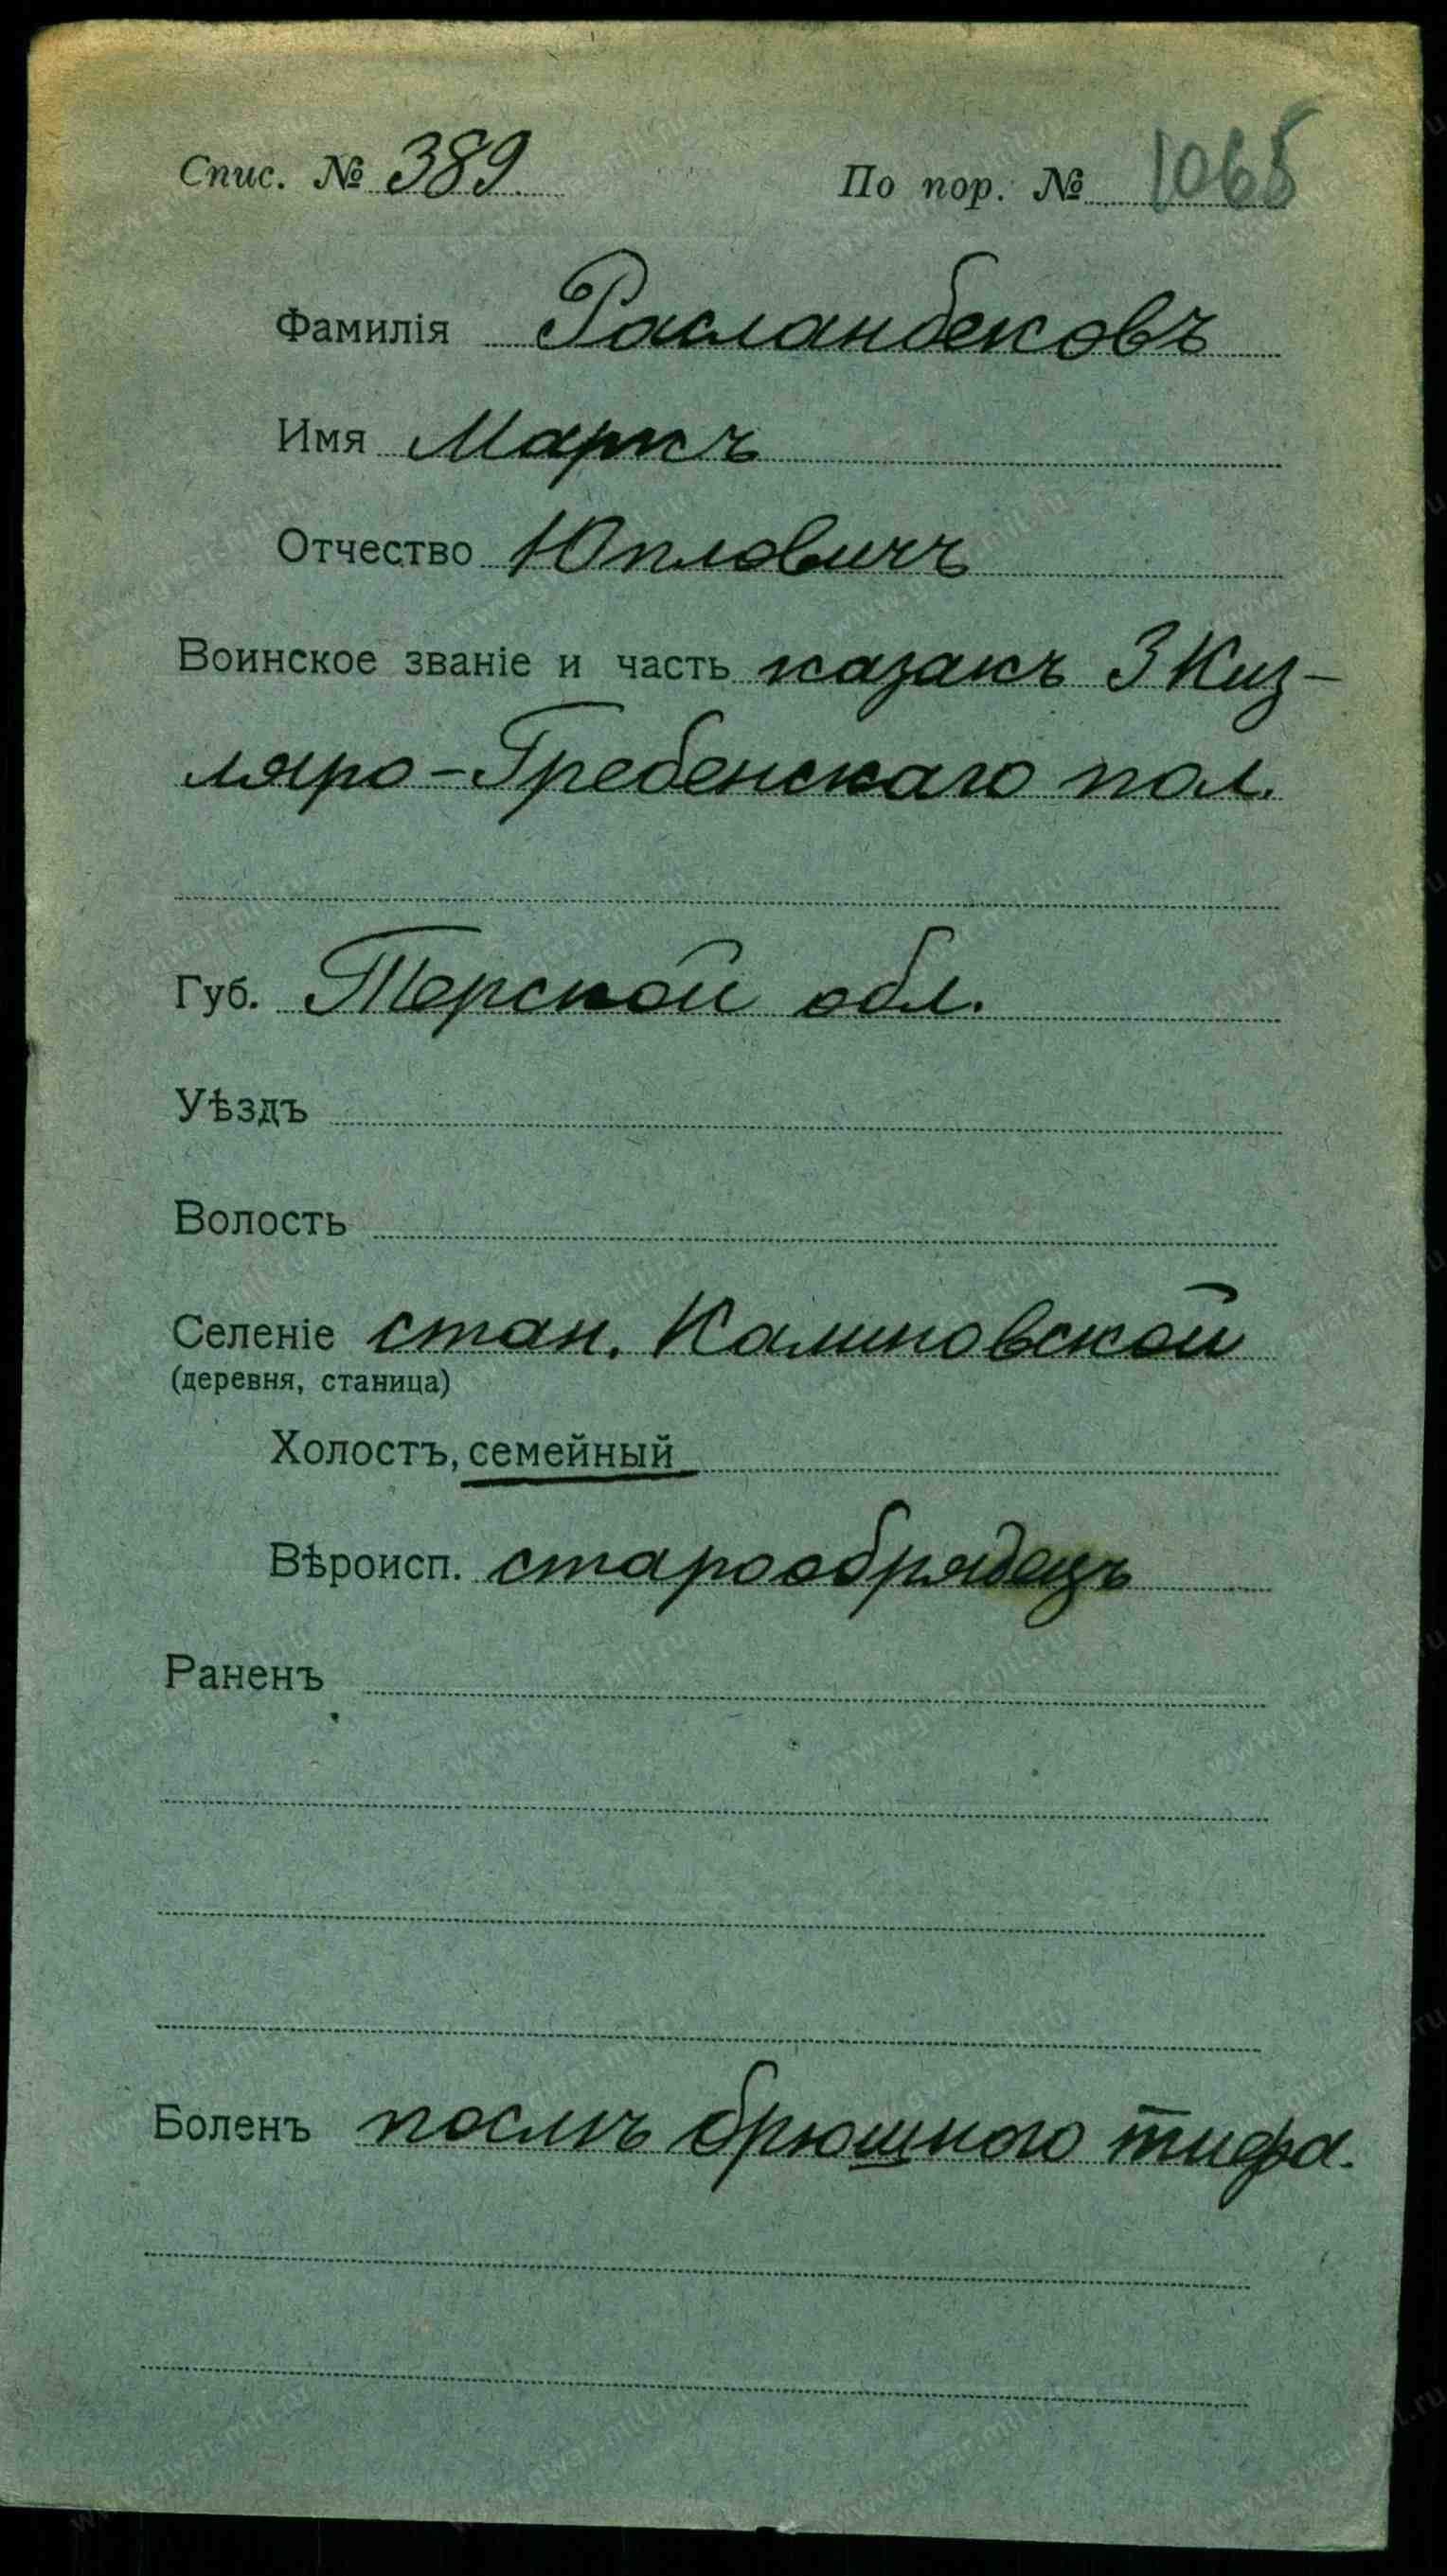 Спис. № 389 По пор. № 1065
Фамилія Расланбековъ
Имя Маркъ
Отчество Юпловичъ
Воинское званіе и часть казакъ 3 Киз-
ляро-Гребенскаго пол.
Губ. Терской обл.
Уѣздъ
Волость
Селеніе стан. Калиновской
(деревня, станица)
Холостъ, семейный
Вѣроисп. старообрядецъ
Раненъ
Боленъ послѣ брюшного тифа.